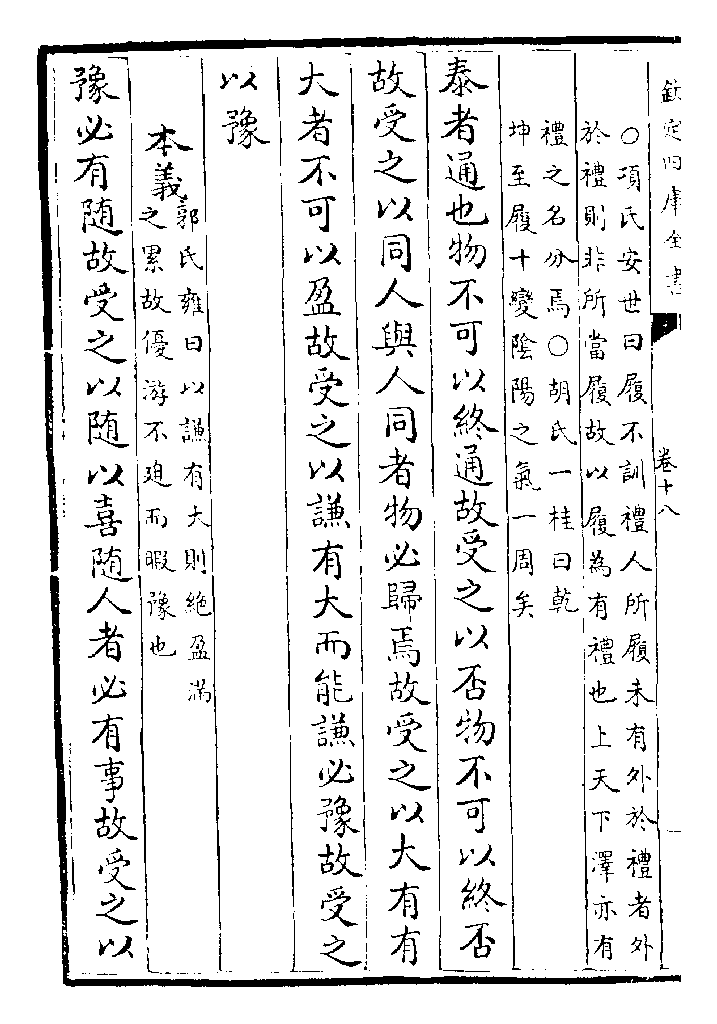 欽定四庫全書
卷十八
○項氏安世曰履不訓禮人所履未有外於禮者外
於禮則非所當履故以履為有禮也上天下澤亦有
禮之名分焉○胡氏一桂曰乾
坤至履十變陰陽之氣一周矣
泰者通也物不可以終通故受之以否物不可以終否
故受之以同人與人同者物必歸焉故受之以大有有
大者不可以盈故受之以謙有大而能謙必豫故受之
以豫
本義
郭氏雍曰以謙有大則絶盈滿
之累故優游不迫而暇豫也
豫必有随故受之以随以喜随人者必有事故受之以